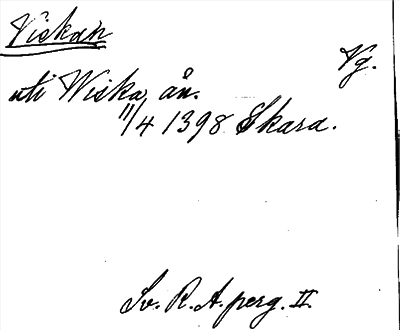 Viskan
Vg.
uti Wiska ån.
11/4 1398 Skara.
Sv. R. A. perg. II.